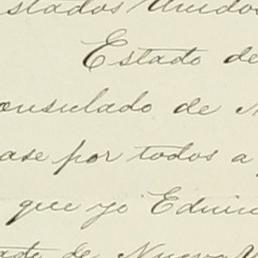 stados Unidos
Estado de
onsulado de
ase por todos a
que yo Edwin
de Nueva